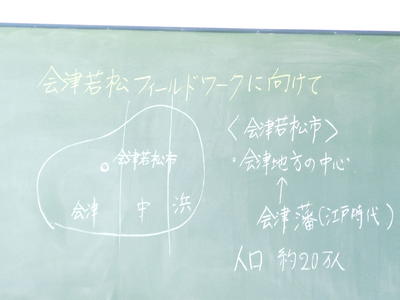 会津若松フィールドワークに向けて
会津若松市
会津 中 浜
〈会津若松市〉
・会津地方の中心
↑
会津藩(江戸時代)
人口 約20万人